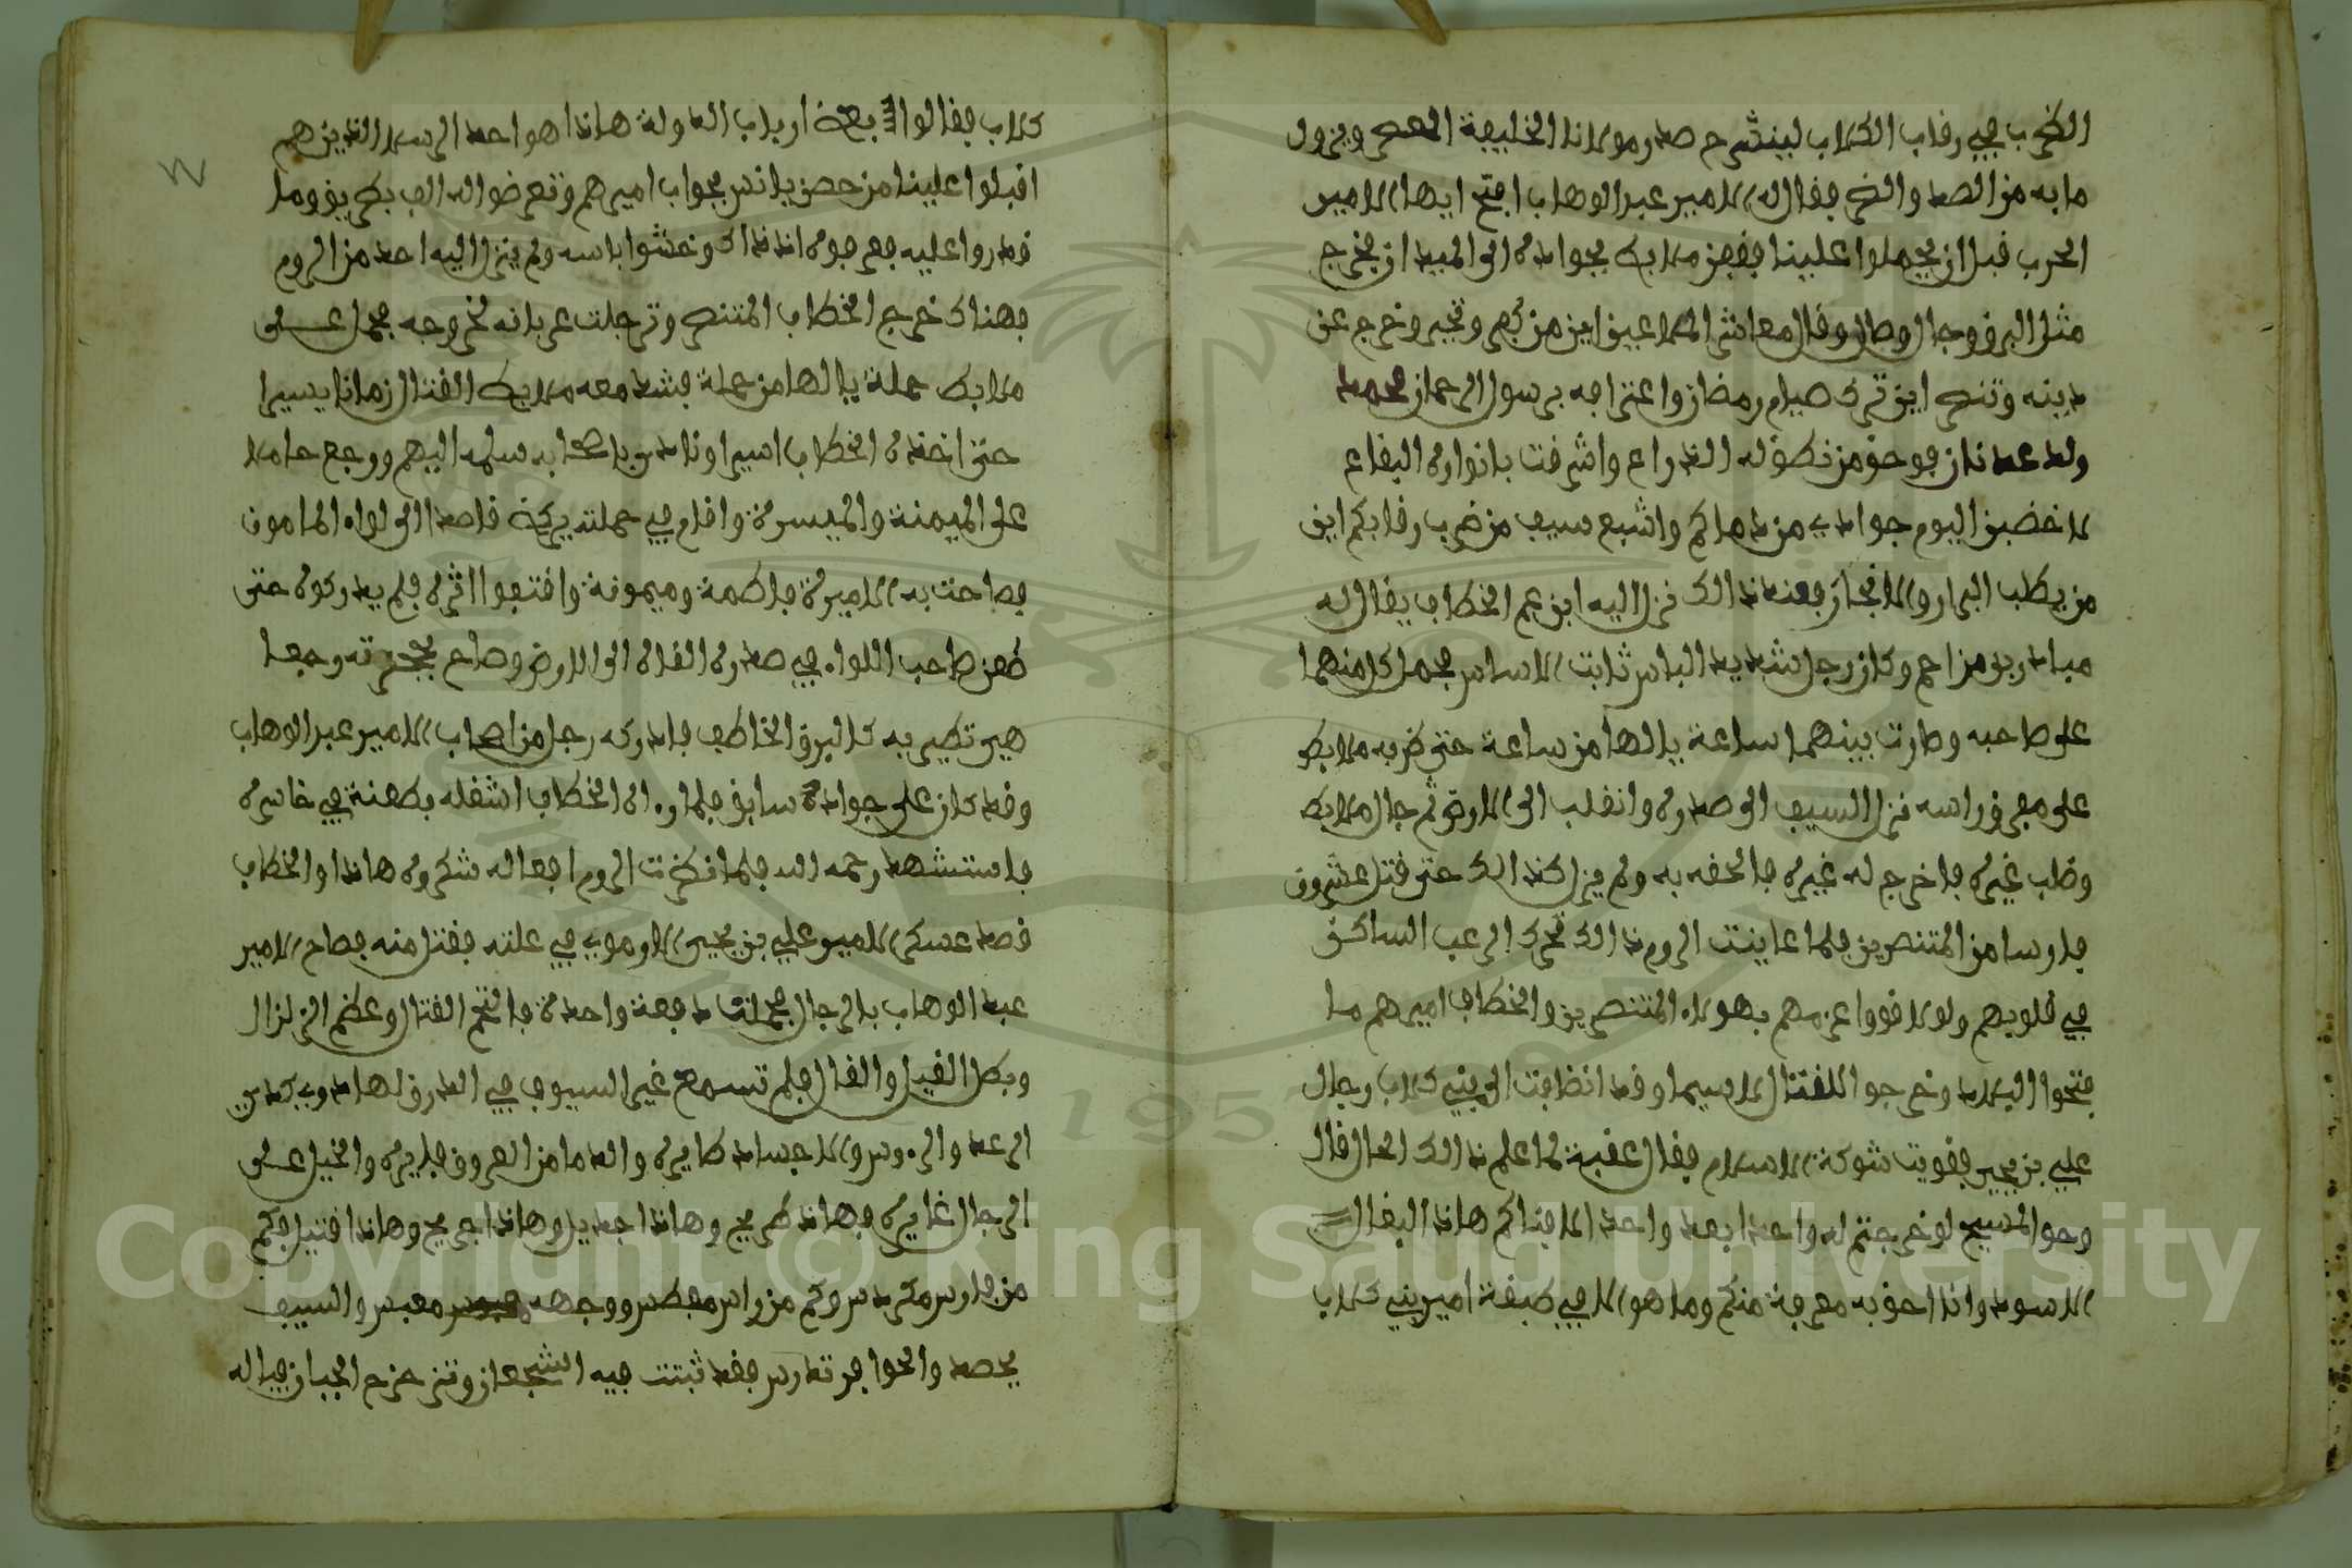 الضرب في رقاب الكلاب لينشرح صدر مولانا الخليفة المعصر ويزول
ما به من الصد والضر فقال له الامير عبد الوهاب افتح ايها الامير
الحرب قبل ان يحملوا علينا فقفز ملابط بجواده الى الميدان فخرج
مثل البرق وجال وصال وقال معاشر الملاعين اين من كفر وتجبر وخرج عن
دينه وتنصر اين ترك صيام رمضان واعترافه برسول الرحمان محمد
ولد عدنان فوحق من نطق له الذراع واشرفت بانواره البقاع
لاخضبن اليوم جوادي من دماكم واشبع سيف من ضرب رقابكم اين
من يطلب البراز والانجاز فعند ذالك نزل اليه ابن عم الخطاب يقال له
مبادر بن مزاحم وكان رجل شديد الباس ثابت الاساس فحمل كل منهما
على صاحبه وصارت بينهما ساعة يا لها من ساعة حتى ضربه ملابط
على مفرق راسه نزل السيف الى صدره وانقلب الى الارض ثم جال ملابط
وطلب غيره فاخرج له غيره فالحقه به ولم يزل كذالك حتى قتل عشرون
فارسا من المتنصرين فلما عاينت الروم ذالك تحرك الرعب الساكن
في قلوبهم ولولا قووا عزمهم بهولاء المتنصرين والخطاب اميرهم ما
فتحوا البلاد وخرجوا للقتال لاسيما وقد انظافت الى بني كلاب رجال
علي بن يحيى فقويت شوكة الاسلام فقال عقبة لما علم ذالك الحال قال
وحو المسيح لو خرجتم له واحدا بعد واحد الافناكم هاذا البغال
الاسود وانا احق به معرفة منكم وما هو الا في صفة امير بني كلاب
كلاب فقالوا اربعة ارباب الدولة هاذا هو احد الرسل الذين هم
اقبلوا علينا من حصن يانس بجواب اميرهم وتعرضوا له الف بطريق وما
قدروا عليه فعرفوه اذ ذاك وخشوا باسه ولم ينزل اليه احد من الروم
فهناك خرج الخطاب المتنصر وترجلت عربانه لخروجه فحمل على
ملابط حملة يا لها من حملة فشد معه ملابط القتال زمانا يسيرا
حتى اخذه الخطاب اسيرا ونادى باصحابه سلمه اليهم ورجع حاملا
على الميمنة والميسرة واقام في حملته بركة قاصدا الى لواء المامون
فصاحت به الاميرة فاطمة وميمونة واقتفوا اثره فلم يدركوه حتى
طعن صاحب اللواء في صدره القاه الى الارض وصاح بحجرته وجعل
هي تطير به كالبرق الخاطف فادركه رجل من اصحاب الامير عبد الوهاب
وقد كان على جواده سابق فلما راه الخطاب اشغله بطعنة في خاسره
فاستشهد رحمه الله فلما نظرت الروم افعاله شكروه هاذا والخطاب
قصد عسكر الامير علي بن يحيى الارموي في علته فقتل منه فصاح الامير
عبد الوهاب بالرجال فحملت دفعة واحدة فالتحم القتال وعظم الزلزال
وبطل القيل والقال فلم تسمع غير السيوف في الدرق لها دوي كدي
الرعد والرءوس والاجساد طايرة والدما من العروق فايرة والخيل على
الرجال غايرة فهاذا طريح وهاذا جديل وهاذا جريح وهاذا قتيل فكم
من فارس مكردس وكم من راس مغطس ووجهه معبس والسيف
يحصد والحوافر تدرس فقد ثبتت فيه الشجعان وتزحزح الجبان فياله